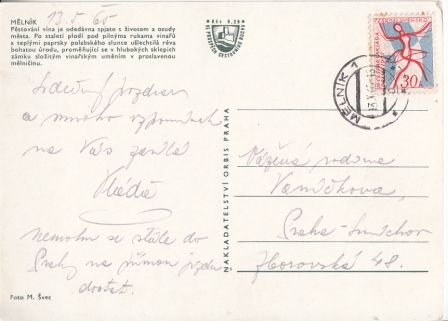 13. 5 65
MĚLNÍK
Pěstování vína je odedávna spjato s životem a osudy
města. Po staletí plodí pod pilnýma rukama vinařů
a teplými paprsky polabského slunce ušlechtilá réva
bohatou úrodu, proměňující se v hlubokých sklepích
zámku složitým vinařským uměním v proslavenou
mělničinu.
Kčs 0,50
VE PROSPĚCH CESTOVNÍHO RUCHU
ČESKOSLOVENSKO
30
MĚLNÍK 1
Srdečný pozdrav
a mnoho vzpomínek
na Vás zasílá
Vláďa
nemohu se stále do
Prahy na přímou jízdu
dostat.
NAKLADATELSTVÍ ORBIS PRAHA
Vážená rodina
Vaníčkova,
Praha-Smíchov
Zborovská 48.
Foto M. Švec